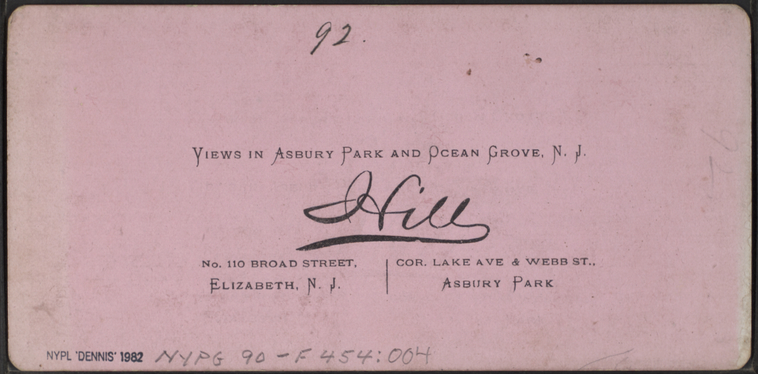 92.
VIEWS IN ASBURY PARK AND OCEAN GROVE, N. J.
Hill
No. 110 BROAD STREET,
ELIZABETH, N. J.
COR. LAKE AVE & WEBB ST.,
ASBURY PARK
NYPL 'DENNIS' 1982 NYPG 90-F454:004